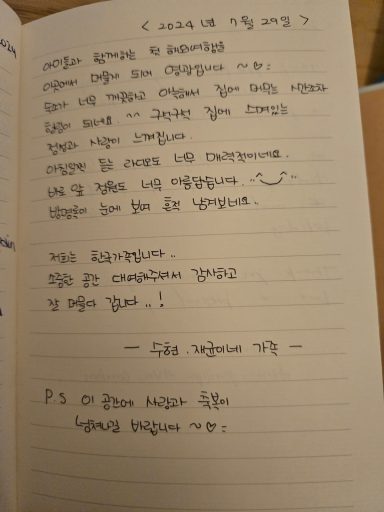 < 2024년 7월 29일 >
아이들과 함께하는 첫 해외여행을
이곳에서 머물게 되어 영광입니다 ~♡:
숙소가 너무 깨끗하고 아늑해서 집에 머무는 시간조차
힐링이 되네요. ^^ 구석구석 집에 스며있는
정성과 사랑이 느껴집니다.
아침일찍 듣는 라디오도 너무 매력적이네요.
바로 앞 정원도 너무 아름답습니다.
방명록이 눈에 보여 흔적 남겨보네요..
저희는 한국가족입니다..
소중한 공간 대여해주셔서 감사하고
잘 머물다 갑니다..!
— 수현. 재균이네 가족 —
P.S 이 공간에 사랑과 축복이
넘쳐나길 바랍니다 ~♡: